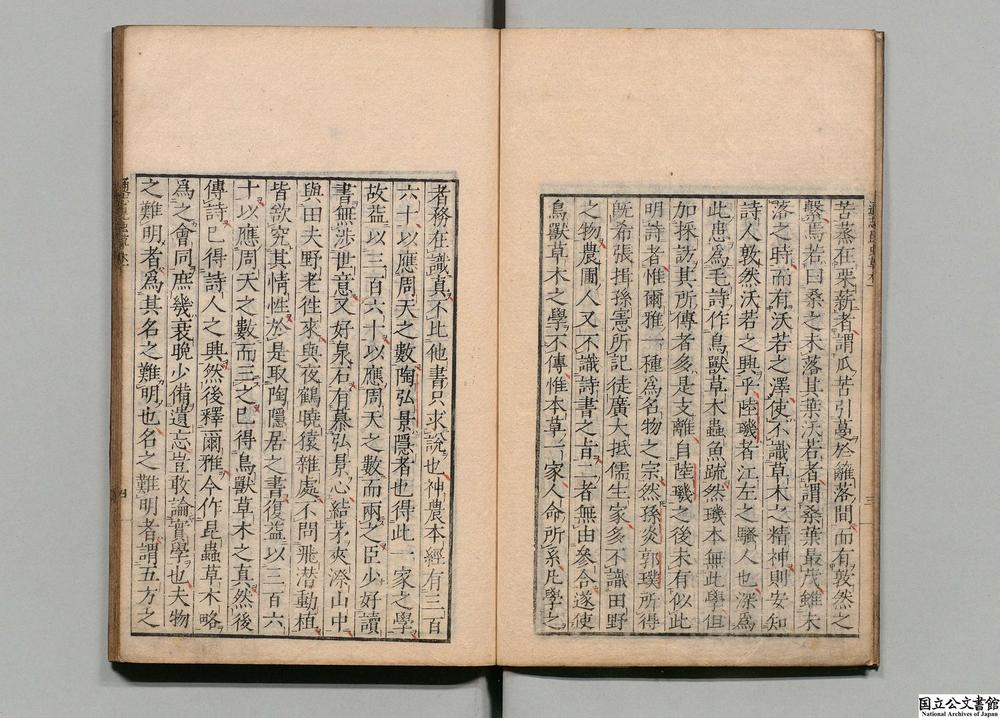 苦蒸在栗薪者謂瓜苦引蔓於籬落間而有敦然之
繫焉若曰桑之未落其葉沃若者謂桑葉最茂雖未
落之時而有沃若之澤使不識草木之精神則安知
詩人敦然沃若之興乎陸璣者江左之騷人也深為
此患為毛詩作鳥獸草木蟲魚疏然璣本無此學但
加採訪其所傳者多是支離自陸璣之後未有似此
明詩者惟爾雅一種為名物之宗然孫炎郭璞所得
既希張揖孫憲所記徒廣大抵儒生家多不識田野
之物農圃人又不識詩書之旨二者無由參合遂使
鳥獸草木之學不傳惟本草一家人命所系凡學之
者務在識真不比他書只求說也神農本經有三百
六十以應周天之數陶弘景隱者也得此一家之學
故益以三百六十以應周天之數而兩之臣少好讀
書無涉世意又好泉石有慕弘景心結茅夾漈山中
與田夫野老往來與夜鶴曉猿雜處不問飛潛動植
皆欲究其情性於是取陶隱居之書復益以三百六
十以應周天之數而三之已得鳥獸草木之真然後
傳詩已得詩人之興然後釋爾雅今作昆蟲草木略
為之會同庶幾衰晚少備遺忘豈敢論實學也夫物
之難明者為其名之難明也名之難明者謂五方之
三
四
国立公文書館
National Archives of Japan